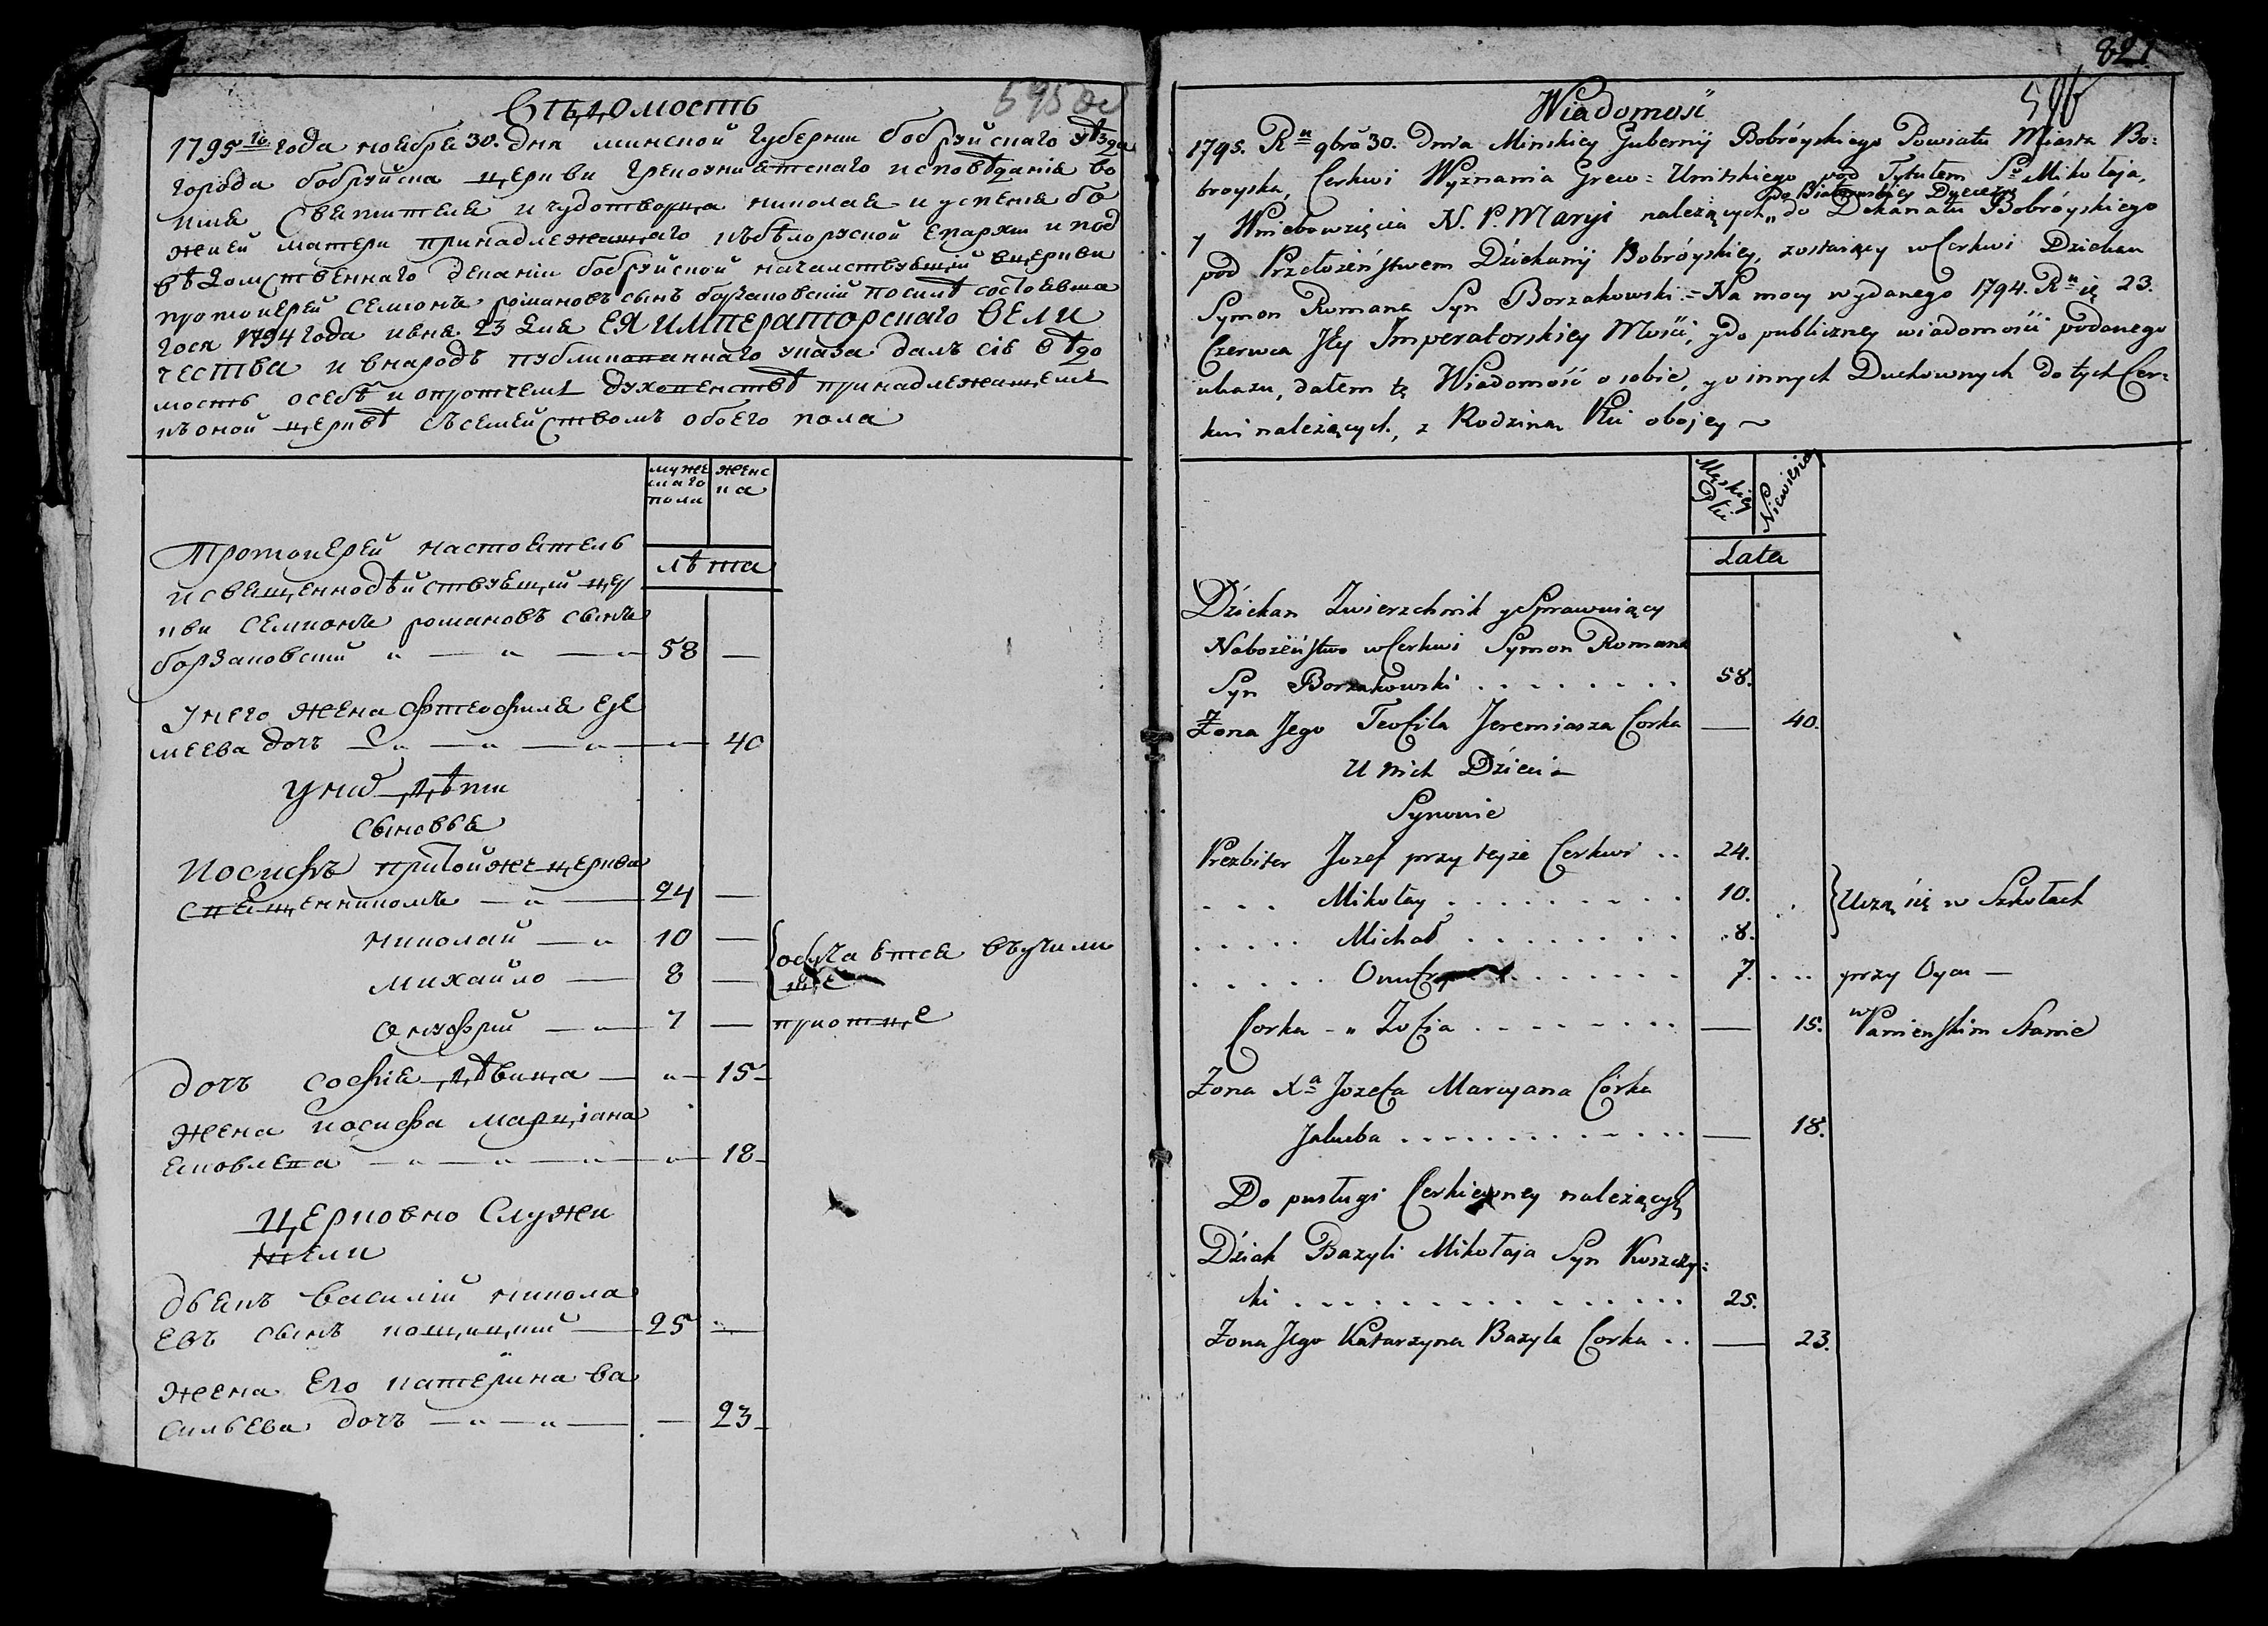 Вѣдомость
595 об
1795го года ноября 30. дня минской губернии бобруйского уѣзда
города бобруйска церкви грекоуниатскаго исповѣдания во
имя Святителя и чудотворца николая и успения бо
жией матери принадлежащаго къ бѣлоруской епархии и под
вѣдомственнаго декании бобруйской началствующий в церкви
протоиерей семионъ романовъ сынъ борзаковский по силѣ состоявша
гося 1794 года июня 23 дня ЕЯ ИМПЕраторскаго ВЕЛИ
чества и в народъ публикованнаго указа далъ сiю вѣдо
мость о себѣ и о протчемъ духовенствѣ принадлежащемъ
къ оной церквѣ съ семействомъ обоего пола
муже
скаго
пола
женс
ка
лѣта
Протоиерей настоятель
и священнодѣйствующий цер
кви семионъ романовъ сынъ
борзаковский 58 —
У него жена фтеофиля ере
меева дочь 40
У них дѣти
сыновья
Иосифъ при той же церкви
священникомъ 24 —
николай 10 —
михайло 8 —
обучаются въ учили
щѣ
онуфрий 7 — при отцѣ
дочь софия дѣвица 15
жена иосифа марциана
яковлева 18
Церковно служи
тели
дьякъ василий никола
евъ сынъ кощицкий 25 —
жена его катерина ва
сильева дочь — 23
821
596
Wiadomość
1795. Rᵘ 9bra 30. Dnia Minskiey Gubernij Bobróyskiego Powiatu Miasta Bo=
broyska, Cerkwi Wyznania Greco=Unitskiego pod Tytułem Sᵒ Mikołaja,
do Białoruskiey Dyecezyi
y Wniebowzięcia N. P. Maryi należących„ do Dekanatu Bobróyskiego
pod Przełożeństwem Dziekanij Bobróyskiey, zostaiący w Cerkwi Dziekan
Symon Romana Syn Borzakowski. = Na mocy wydanego 1794. Rᵘ 23.
Czerwca Jey Imperatorskiey Mości, y do publiczney wiadomości podanego
ukazu, dałem tę Wiadomość o sobie, y o innych Duchownych do tych Cer=
kwi należących, z Rodziną Płci obojey ~
Męskiey
Płci
Niewieściey
Lata
Dziekan Zwierzchnik y Sprawuiący
Nabożeństwo w Cerkwi Symon Romana
Syn Borzakowski . . . . . . . . 58.
Żona Jego Teofila Jeremiasza Corka — 40.
U nich Dzieci –
Synowie
Prezbiter Jozef przy teyże Cerkwi . . 24.
. . . Mikołay . . . . . . . . . 10. Uczą się w Szkołach
. . . . . Michał . . . . . . . . 8.
. . . . . Onufry . . . . . . . 7. . . . przy Oycu —
Corka - „ Zofia . . . . . . . . — 15. w Panieńskim Stanie
Żona Xᵃ Jozefa Marcyana Córka
Jakuba . . . . . . . . . . . . . — 18.
Do posługi Cerkiewney należących
Dziak Bazyli Mikołaja Syn Koszczy=
ki . . . . . . . . . . . . . . . . 25.
Żona Jego Katarzyna Bazyla Corka . . — 23.